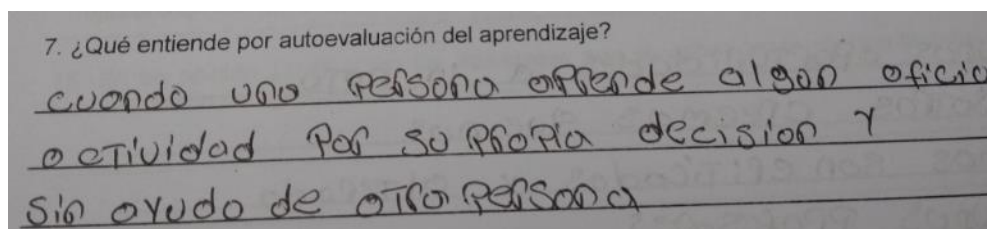 7. ¿Qué entiende por autoevaluación del aprendizaje?
cuando una persona aprende algun oficio
o actividad por su propia decision y
sin ayuda de otra persona